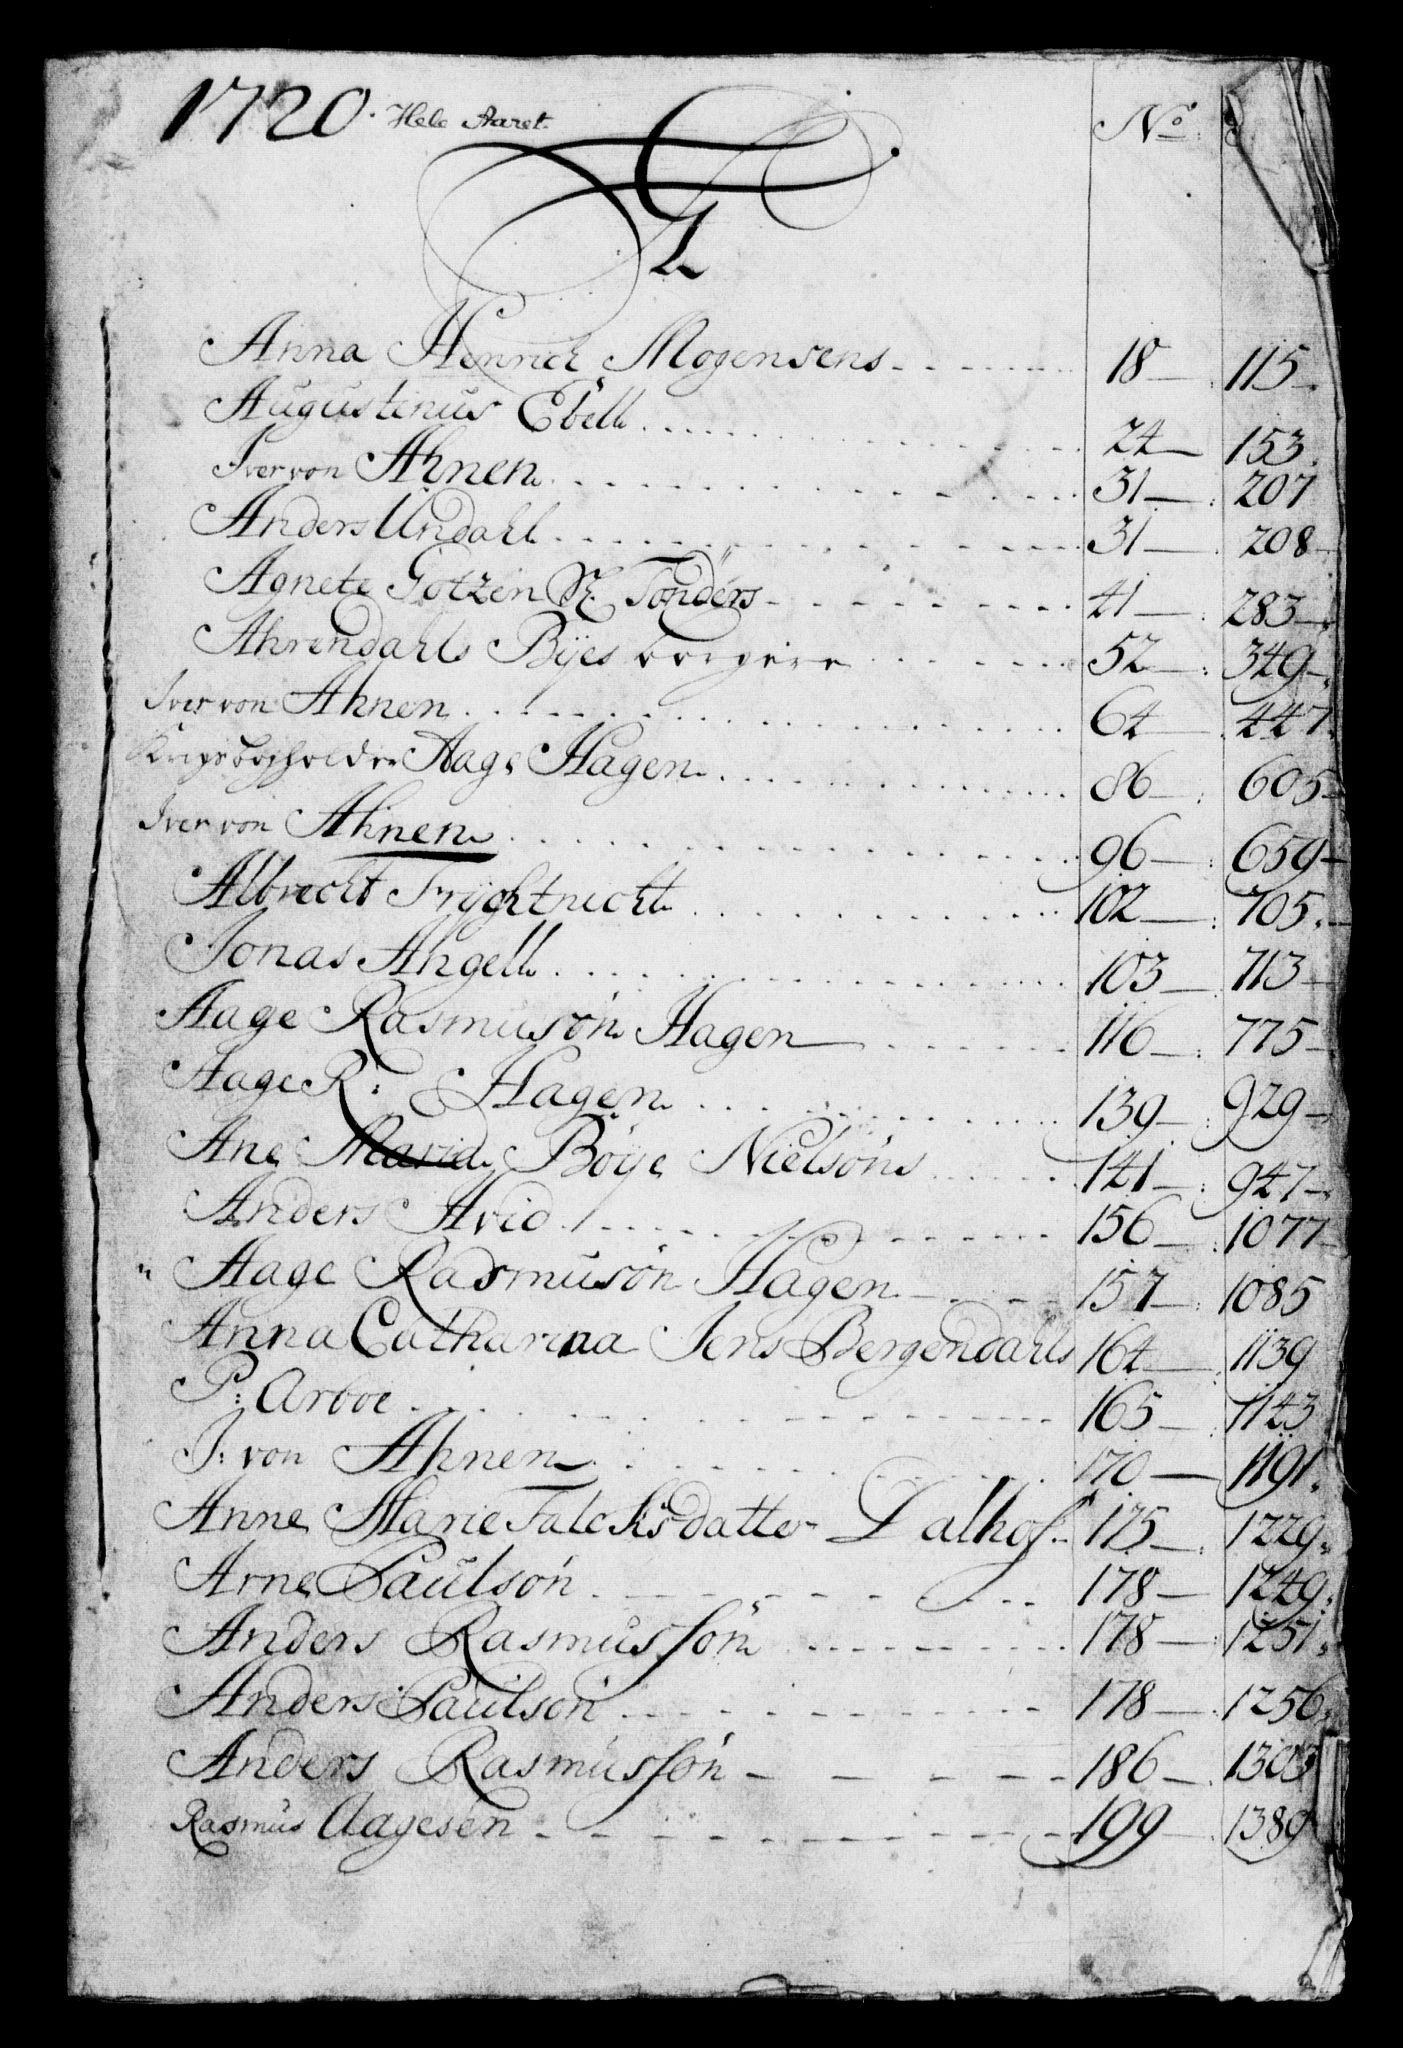 1720. Hele Aaret.
No
A
Anna Henrich Mogensens 18 115
Augustinus Ebell 24 153
Iver von Ahnen 31 207
Anders Undahl 31 208
Agnete Götzen Sl. Tönders 41 283
Ahrendahls Byes borgere 52 349
Iver von Ahnen 64 447
Krigsbogholder Aage Hagen 86 605
Iver von Ahnen 96 659
Albrecht Frychtnicht 102 705
Jonas Angell 103 713
Aage Rasmusøn Hagen 116 775
Aage R: Hagen 139 929
Ane Maria Böye Nielsøns 141 947
Anders Avid 156 1077
Aage Rasmusøn Hagen 157 1085
Anna Catharina Jens Bergendahls 164 1139
P: Arboe 165 1143
J: von Ahnen 170 1191
Anne Marie Falcksdatter Dalhof 175 1229
Arne Paulsøn 178 1249
Anders Rasmussøn 178 1251
Anders Paulsøn 178 1256
Anders Rasmussøn 186 1303
Rasmus Aagesen 199 1389